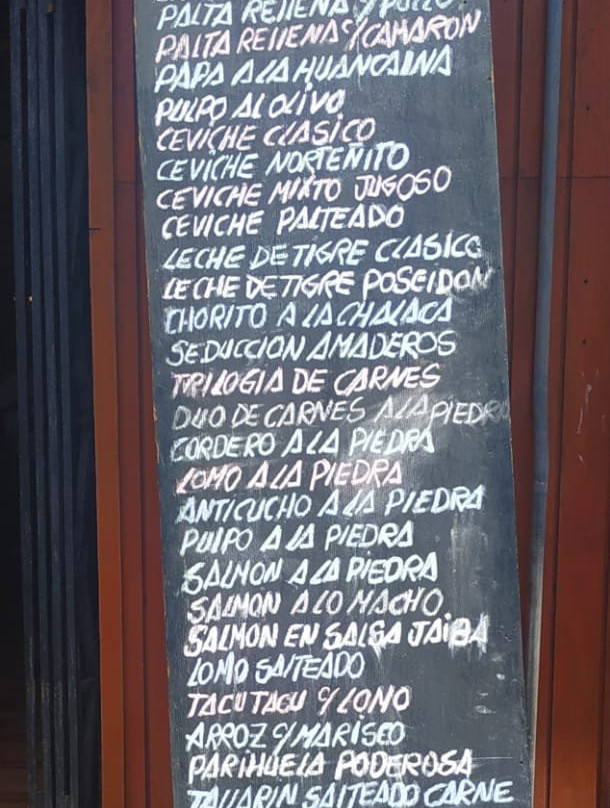 PALTA RELLENA C/POLLO
PALTA RELLENA C/CAMARON
PAPA A LA HUANCAINA
PULPO AL OLIVO
CEVICHE CLASICO
CEVICHE NORTEÑITO
CEVICHE MIXTO JUGOSO
CEVICHE PALTEADO
LECHE DE TIGRE CLASICO
LECHE DE TIGRE POSEIDON
CHORITO A LA CHALACA
SEDUCCION AMADEROS
TRILOGIA DE CARNES
DUO DE CARNES A LA PIEDRA
CORDERO A LA PIEDRA
LOMO A LA PIEDRA
ANTICUCHO A LA PIEDRA
PULPO A LA PIEDRA
SALMON A LA PIEDRA
SALMON A LO MACHO
SALMON EN SALSA JAIBA
LOMO SALTEADO
TACU TACU C/LOMO
ARROZ C/MARISCO
PARIHUELA PODEROSA
TALLARIN SALTEADO CARNE